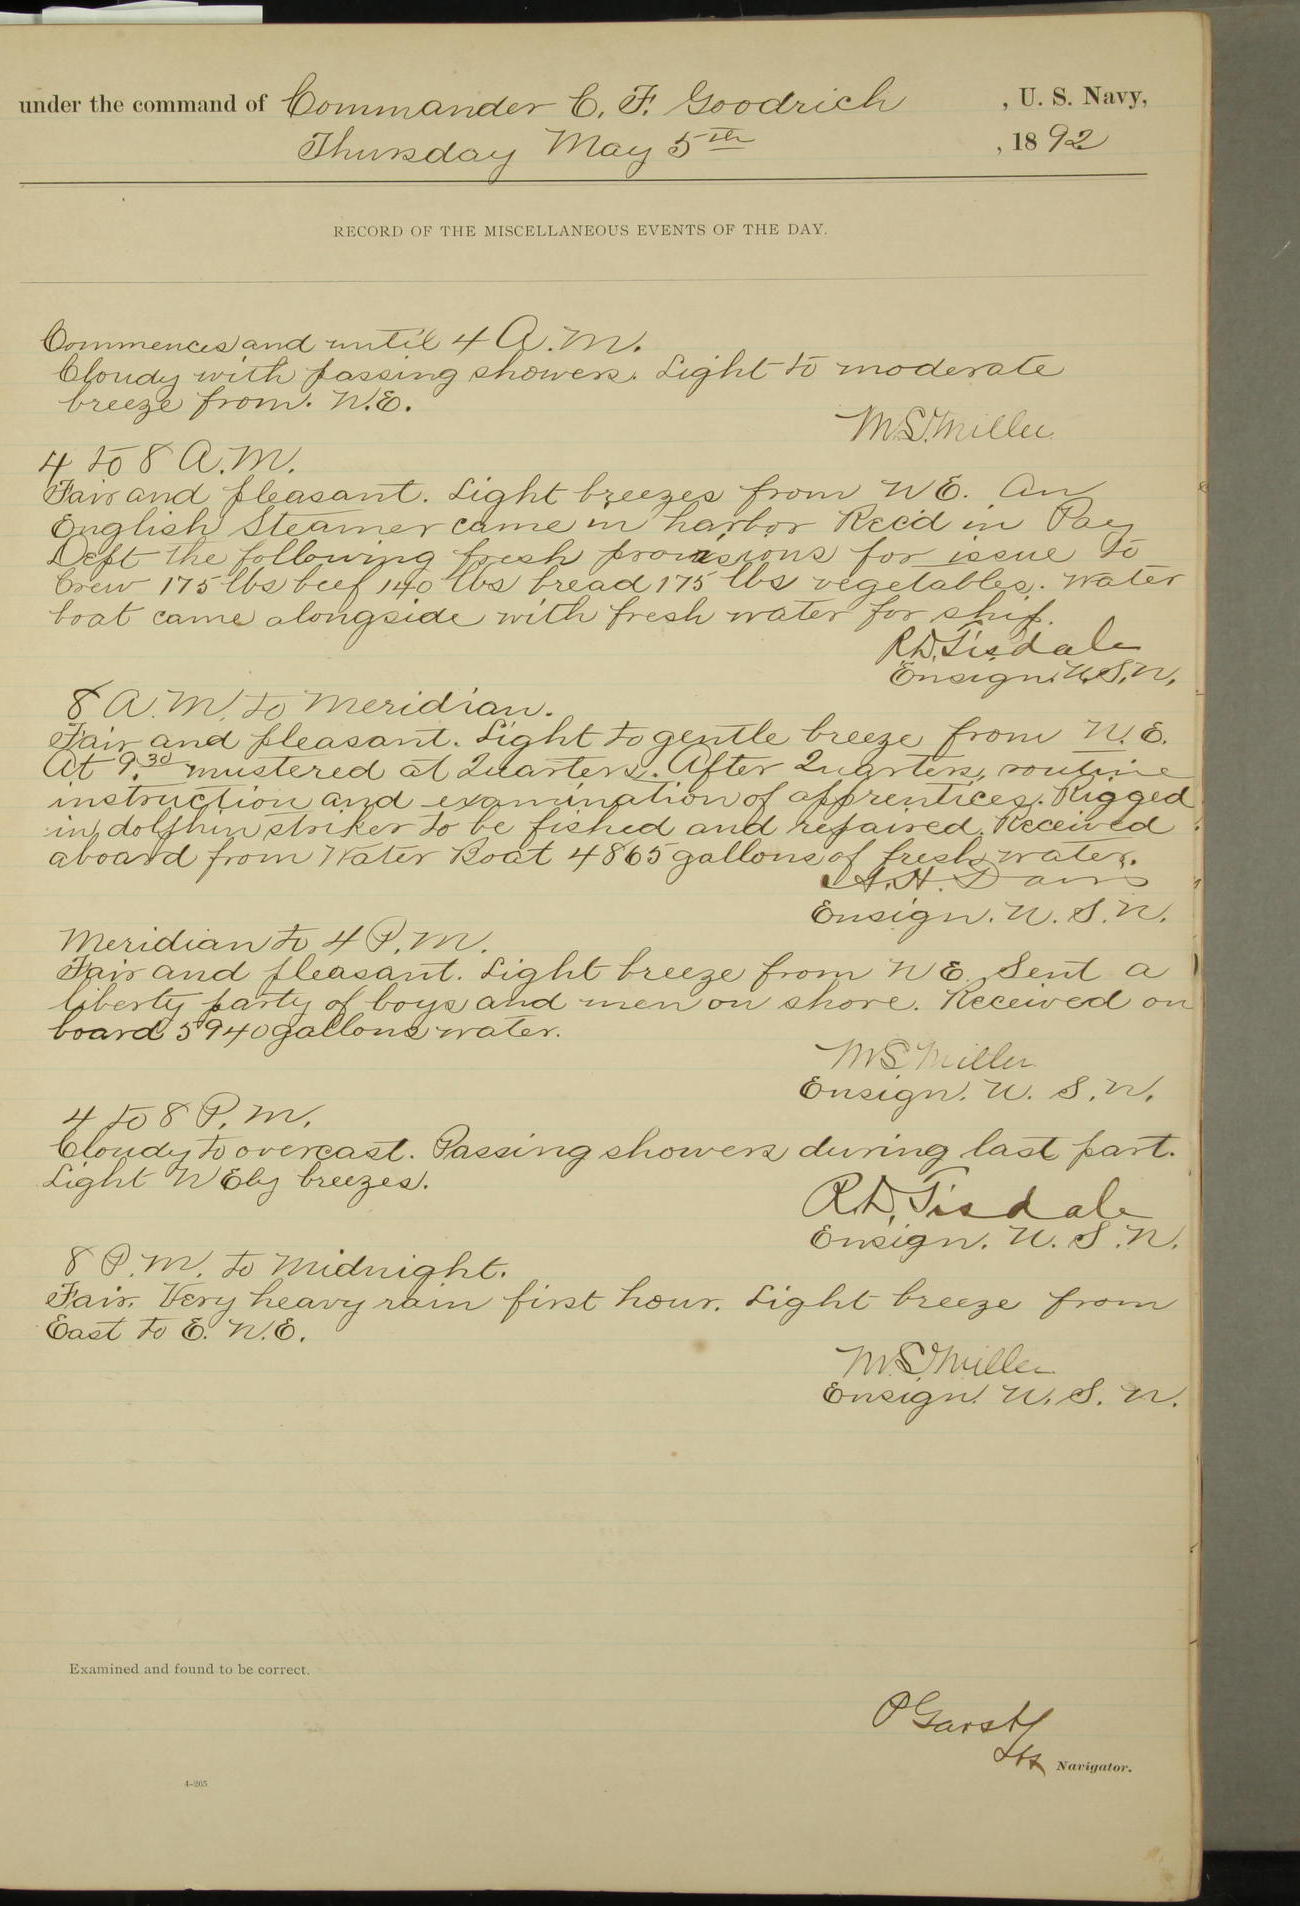 under the command of Commander C. F. Goodrich , U. S. Navy,
Thursday May 5th , 1892
RECORD OF THE MISCELLANEOUS EVENTS OF THE DAY.
Commences and until 4 A.M.
Cloudy with passing showers. Light to moderate
breeze from N.E.
M.S. Miller
4 to 8 A.M.
Fair and pleasant. Light breezes from N E. An
English Steamer came in harbor Rec'd in Pay
Dept the following fresh provisions for issue to
Crew 175 lbs beef 140 lbs bread 175 lbs vegetables. Water
boat came alongside with fresh water for ship.
R.D. Tisdale
Ensign. U.S.N.
8 A.M. to Meridian.
Fair and pleasant. Light to gentle breeze from N.E.
At 9.30 mustered at Quarters. After Quarters, routine
instruction and examination of apprentices. Rigged
in dolphin striker to be fished and repaired. Received
aboard from Water Boat 4865 gallons of fresh water.
A.H. Davis
Ensign. U. S. N.
Meridian to 4 P.M.
Fair and pleasant. Light breeze from N E. Sent a
liberty party of boys and men on shore. Received on
board 5940 gallons water.
M.S. Miller
Ensign. U. S. N.
4 to 8 P.M.
Cloudy to overcast. Passing showers during last part.
Light N Eby breezes.
R.D. Tisdale
Ensign. U. S. N.
8 P.M. to Midnight.
Fair. Very heavy rain first hour. Light breeze from
East to E. N.E.
M.S. Miller
Ensign. U. S. N.
Examined and found to be correct.
P Garst
Navigator.
4–205